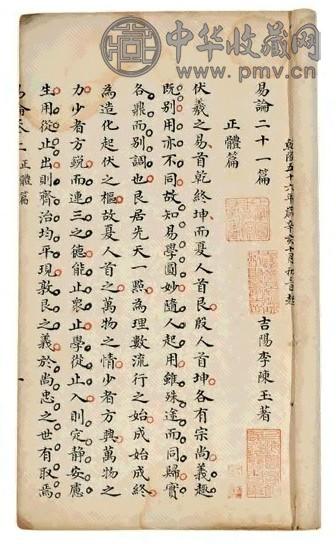 中华收藏网
www.pmv.cn
乾隆五十六年歲辛亥十月
易論二十一篇
吉陽李陳玉著
正體篇
伏羲之易首乾終坤而夏人首艮殷人首坤各有宗尚義趣
既別用亦不同故知易學圓妙隨人起用雖殊途而同歸實
各鼎而別調也艮居先天一照為理數流行之始成始成終
為造化起伏之樞故夏人首之萬物之情少者方興萬物之
力少者方銳而連三之德能止衆止學從止入則定靜安慮
生用從止出則齊治均平現敦艮之義於尚忠之世有取焉
正體篇